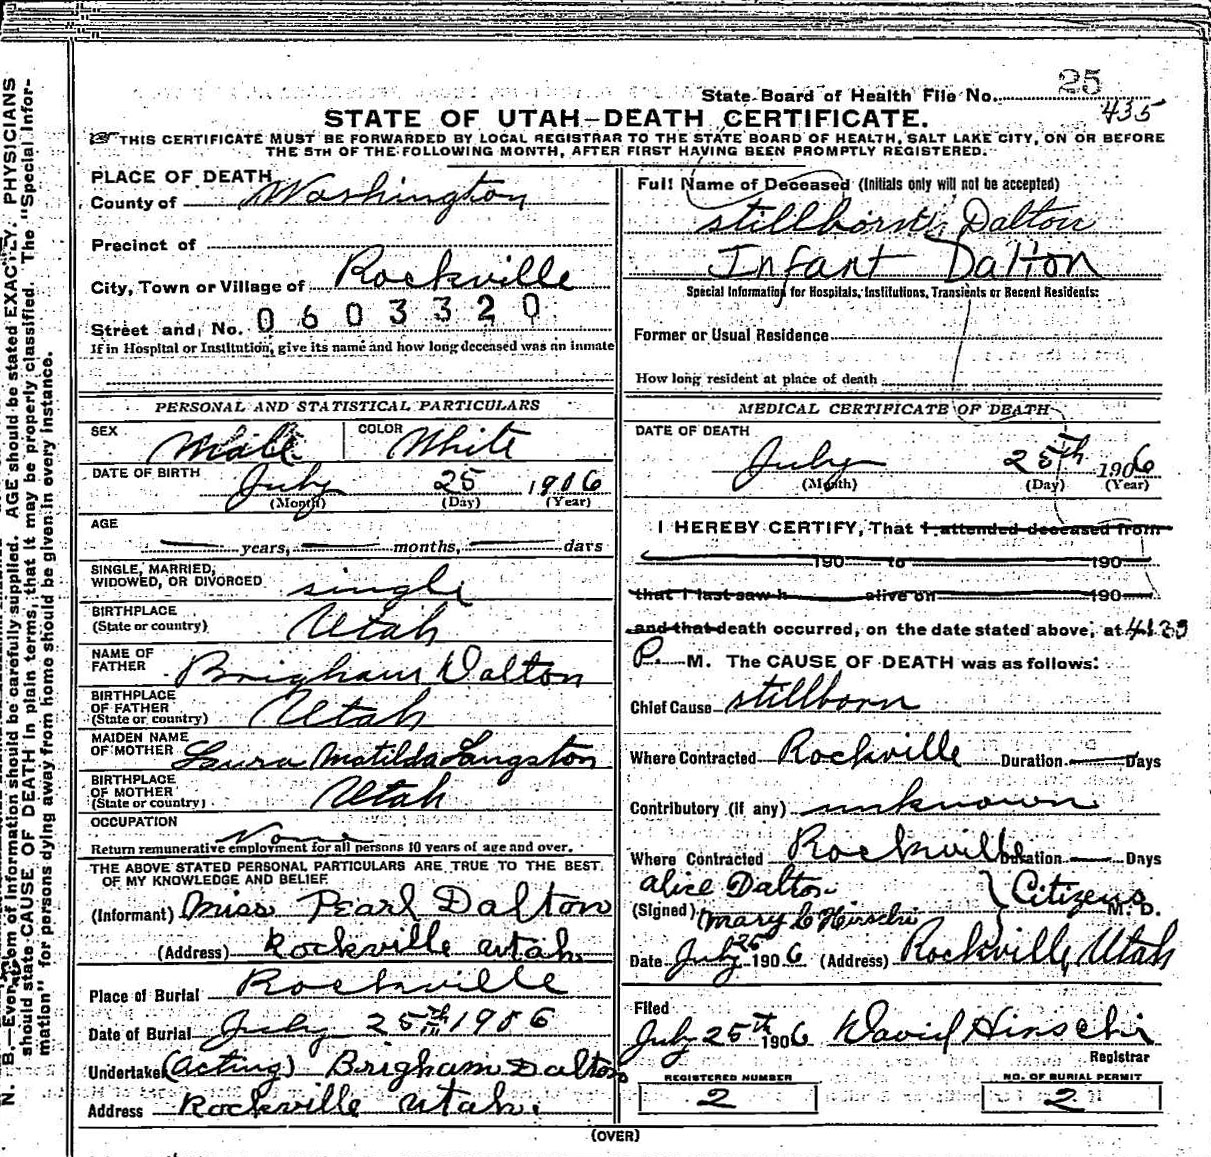 State Board of Health File No. 25
435
STATE OF UTAH–DEATH CERTIFICATE.
THIS CERTIFICATE MUST BE FORWARDED BY LOCAL REGISTRAR TO THE STATE BOARD OF HEALTH, SALT LAKE CITY, ON OR BEFORE
THE 5TH OF THE FOLLOWING MONTH, AFTER FIRST HAVING BEEN PROMPTLY REGISTERED.
PLACE OF DEATH
County of Washington
Precinct of
City, Town or Village of Rockville
Street and No. 0603320
If in Hospital or Institution, give its name and how long deceased was an inmate
PERSONAL AND STATISTICAL PARTICULARS
SEX Male COLOR White
DATE OF BIRTH July 25 1906
(Month) (Day) (Year)
AGE
years, months, days
SINGLE, MARRIED,
WIDOWED, OR DIVORCED single
BIRTHPLACE
(State or country) Utah
NAME OF
FATHER Brigham Dalton
BIRTHPLACE
OF FATHER
(State or country) Utah
MAIDEN NAME
OF MOTHER Laura Matilda Langston
BIRTHPLACE
OF MOTHER
(State or country) Utah
OCCUPATION None
Return remunerative employment for all persons 10 years of age and over.
THE ABOVE STATED PERSONAL PARTICULARS ARE TRUE TO THE BEST
OF MY KNOWLEDGE AND BELIEF
(Informant) Miss Pearl Dalton
(Address) Rockville Utah.
Place of Burial Rockville
Date of Burial July 25th 1906
Undertaker (Acting) Brigham Dalton
Address Rockville Utah.
Full Name of Deceased (Initials only will not be accepted)
stillborn Dalton
Infant Dalton
Special Information for Hospitals, Institutions, Transients or Recent Residents:
Former or Usual Residence
How long resident at place of death
MEDICAL CERTIFICATE OF DEATH
DATE OF DEATH
July 25th 1906
(Month) (Day) (Year)
I HEREBY CERTIFY, That I attended deceased from
190 to 190
that I last saw h alive on 190
and that death occurred, on the date stated above, at
P. M. The CAUSE OF DEATH was as follows:
Chief Cause stillborn
Where Contracted Rockville Duration Days
Contributory (if any) unknown
Where Contracted Rockville Duration Days
Alice Dalton
(Signed) Mary C Hirschi } Citizens M. D.
Date July 25 1906 (Address) Rockville, Utah
Filed
July 25th 1906 David Hirschi
Registrar
REGISTERED NUMBER
2
NO. OF BURIAL PERMIT
2
(OVER)
N. B.—Every item of information should be carefully supplied. AGE should be stated EXACTLY. PHYSICIANS
should state CAUSE OF DEATH in plain terms, that it may be properly classified. The "Special Infor-
mation" for persons dying away from home should be given in every instance.